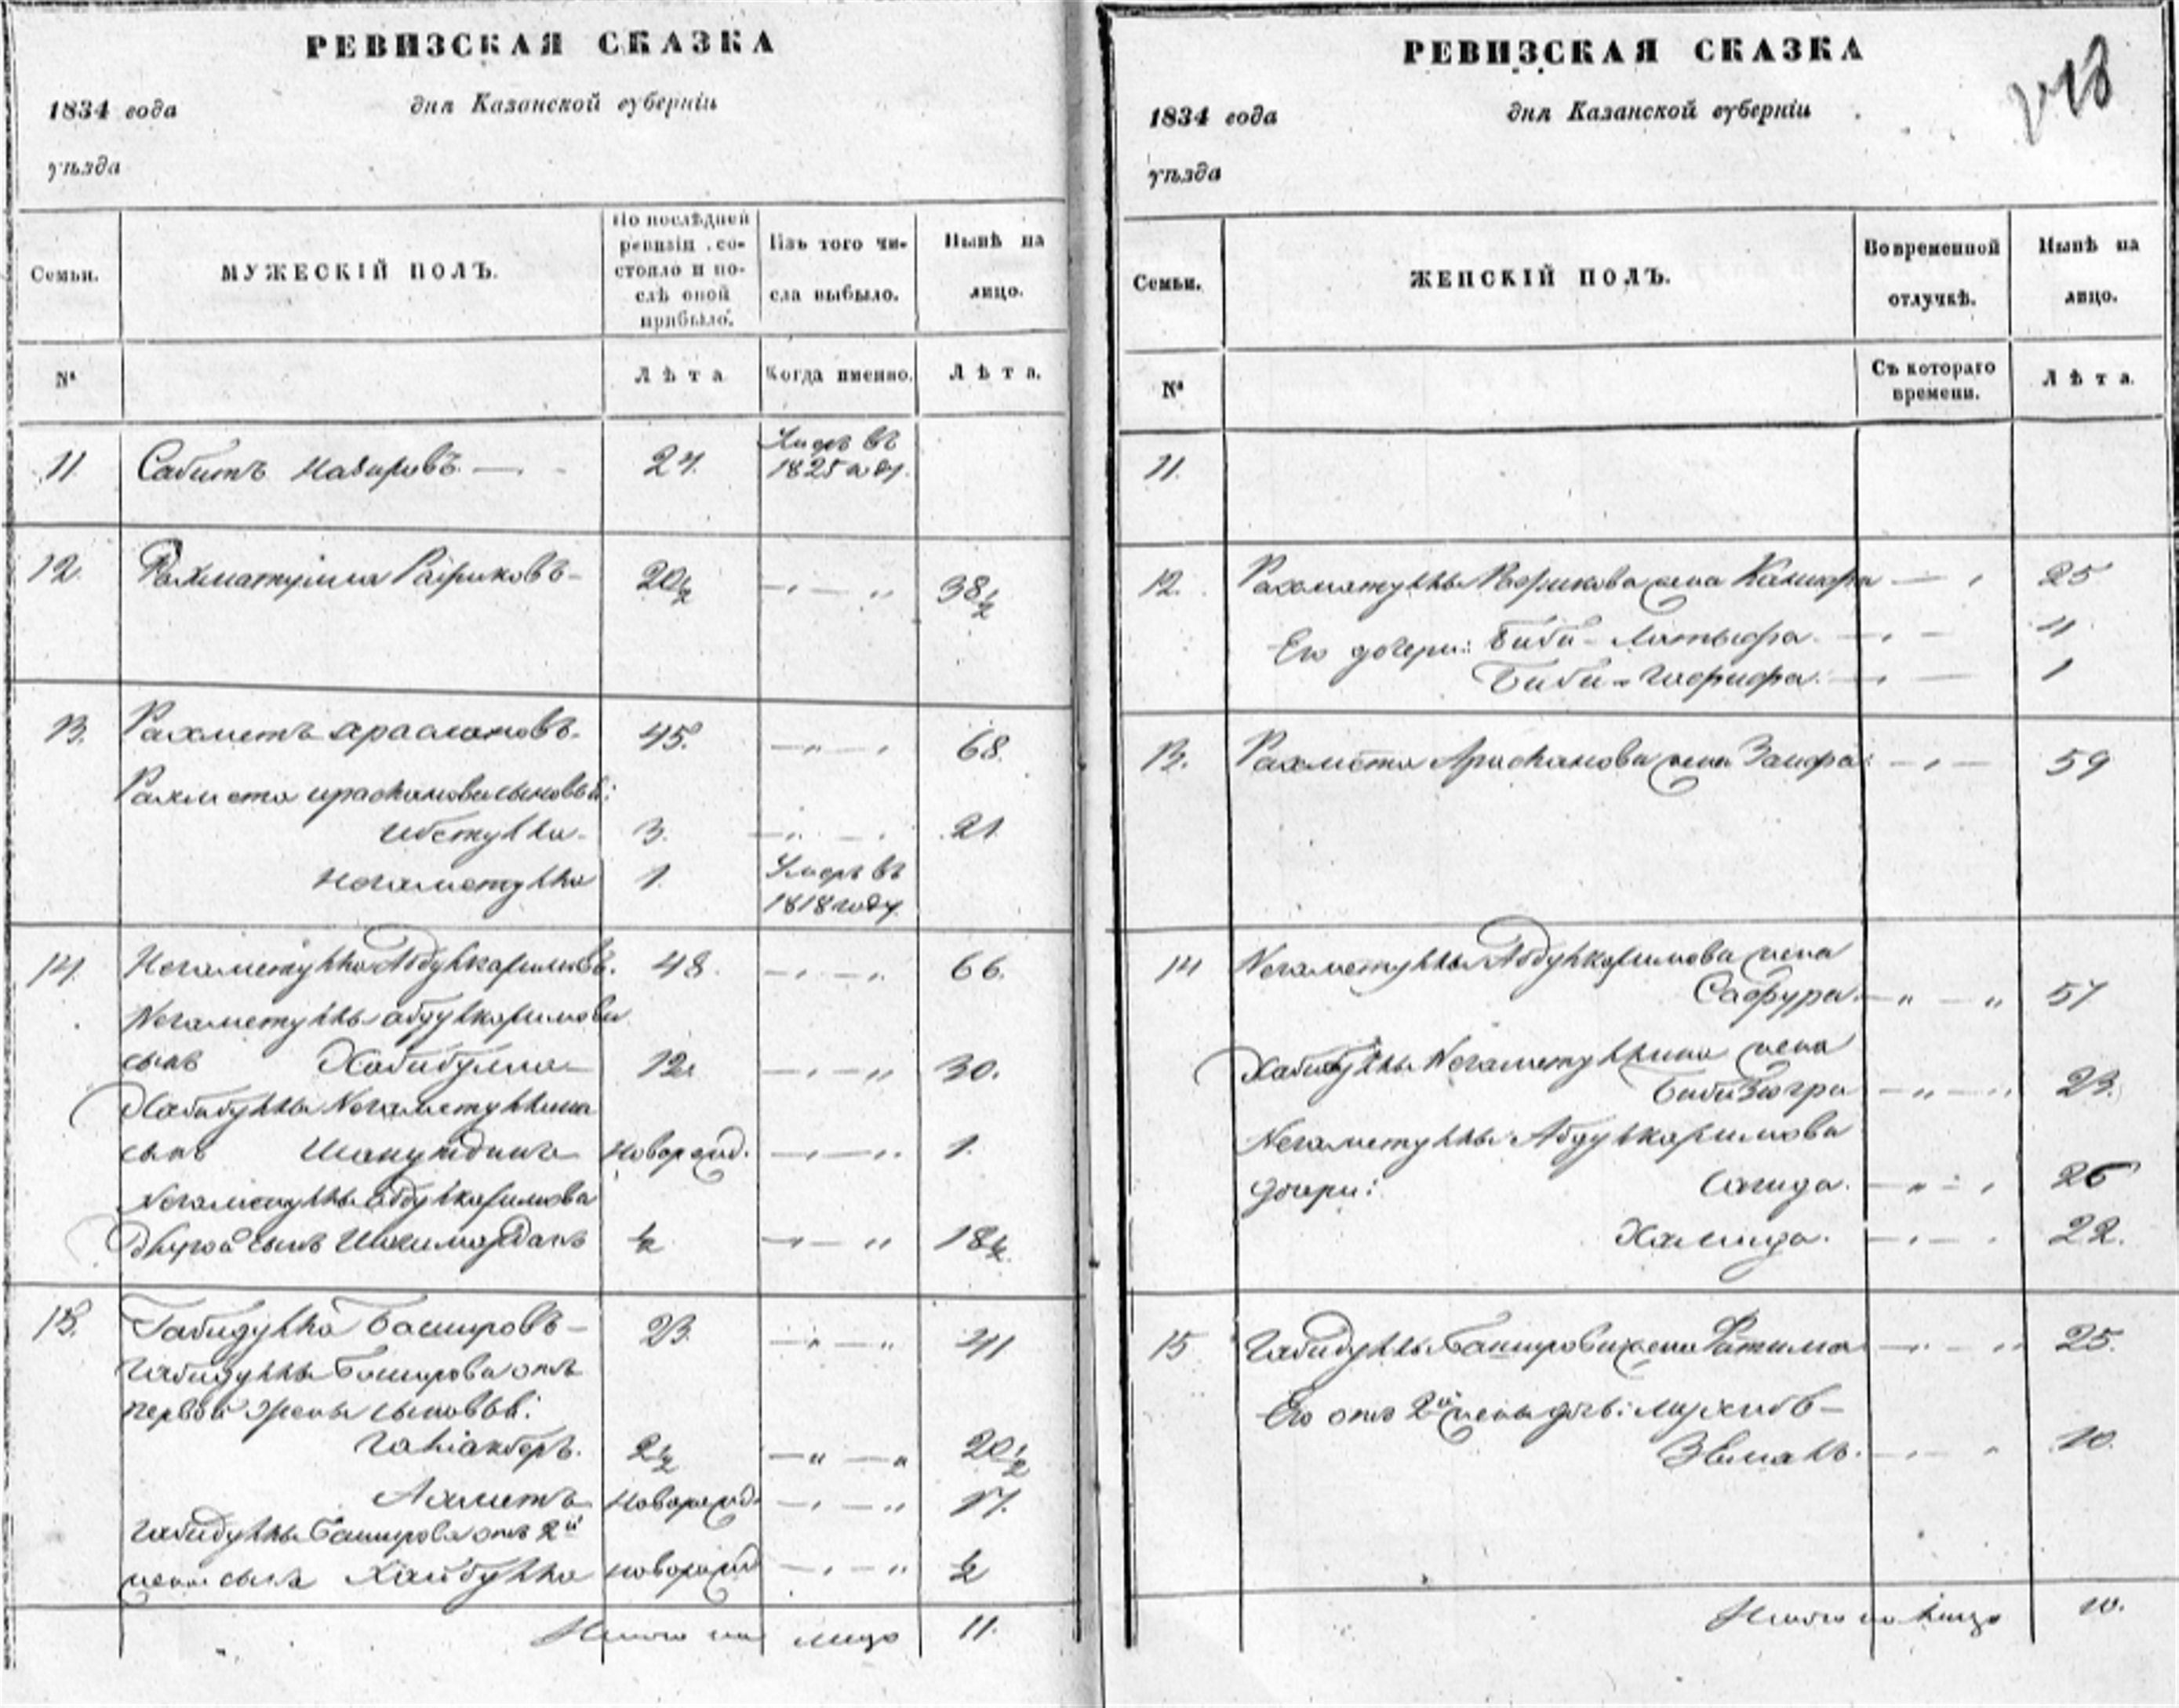 РЕВИЗСКАЯ СКАЗКА
1834 года дня Казанской губерніи
уѣзда
Семьи. МУЖЕСКІЙ ПОЛЪ. По послѣдней ревизіи состояло и послѣ оной прибыло. Изъ того числа выбыло. Нынѣ на лицо.
№ Лѣта Когда именно. Лѣта.
11 Сабитъ Назировъ 24. Умеръ въ
1825 году.
12. Рахматулла Рафиковъ 20½ 38½
13. Рахметъ Арасланновъ 45. 68.
Рахмета Арасланова сыновья:
3. 21.
Негаметулла 1. Умеръ въ
1818 году
14. Негаметулла Абдулкаримовъ. 48. 66.
Негаметуллы Абдулкаримова
сынъ Хабибулла 12. 30.
Хабибуллы Негаметуллина
сынъ новорожд. 1.
Негаметуллы Абдулкаримова
другой сынъ Шагимарданъ ½ 18½
15. Габидулла Башировъ 23. 41
Габидуллы Баширова отъ
первой жены сыновья:
Галіакберъ. 2½ 20½
Ахметъ новорожд. 17.
Габидуллы Баширова отъ 2й
жены сынъ Хайбулла новорожд ½
Итого на лицо 11.
РЕВИЗСКАЯ СКАЗКА
1834 года дня Казанской губерніи
уѣзда
Семьи. ЖЕНСКІЙ ПОЛЪ. Во временной отлучкѣ. Нынѣ на лицо.
№ Съ котораго времени. Лѣта.
11.
12. Рахматуллы Рафикова жена 25
Его дочери: Биби-Латыфа 11
Биби-Гафифа. 1
13. Рахмета Арасланова жена Заифа 59
14 Негаметуллы Абдулкаримова жена
Сафура. 57
Хабибуллы Негаметуллина жена
Биби Зюгра 23.
Негаметуллы Абдулкаримова
дочери: Сагида. 26
Хамида. 22.
15 Габидуллы Баширова жена Фатима 25.
Его отъ 2й жены дочь:
10.
Итого на лицо 10.